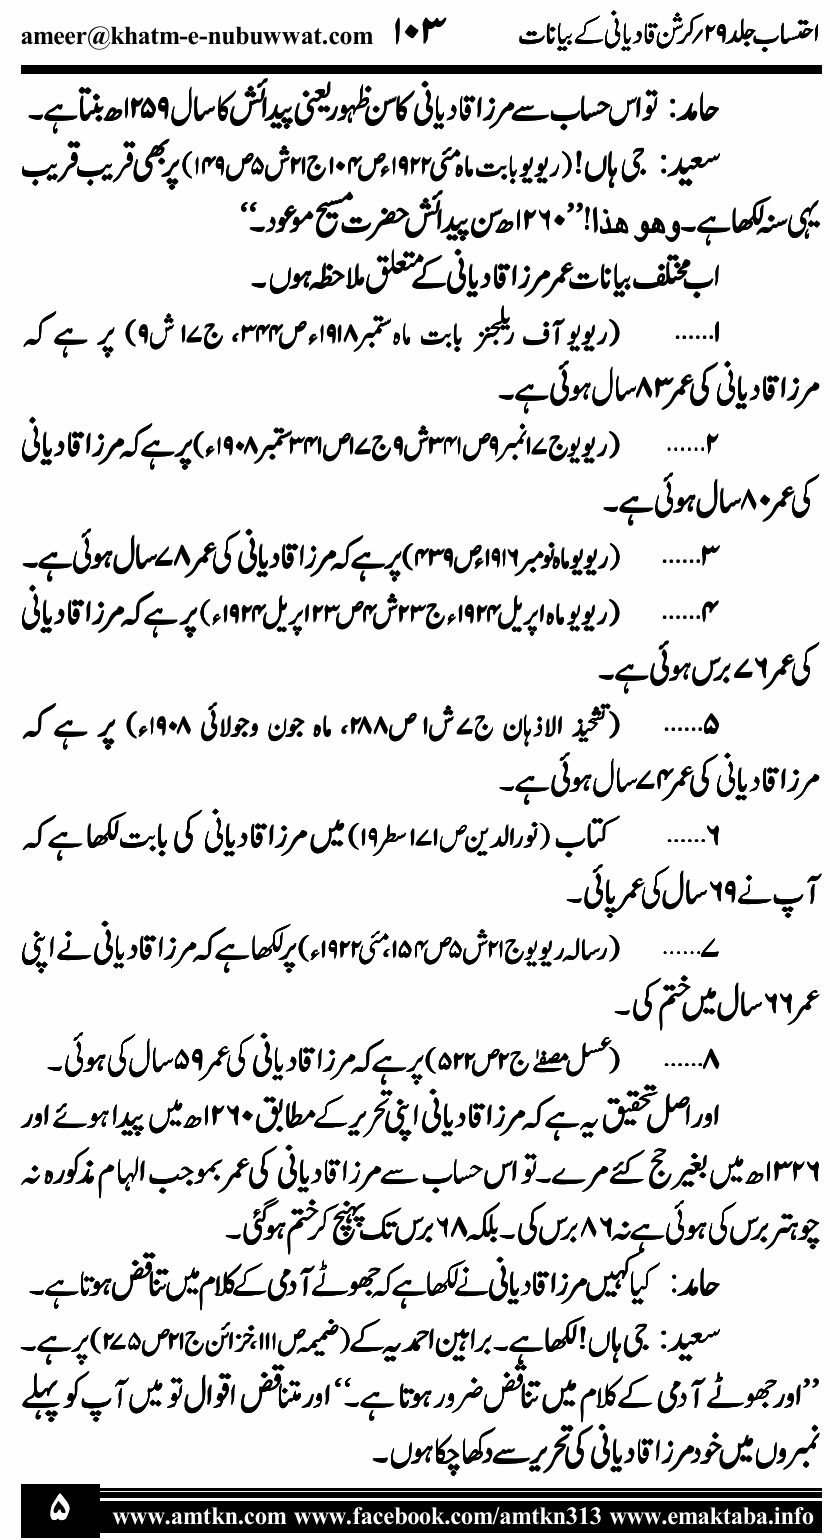 احتساب جلد ۲۹؍ کرشن قادیانی کے بیانات ۱۰۳ ameer@khatm-e-nubuwwat.com
حامد: تو اس حساب سے مرزا قادیانی کا سن ظہور یعنی پیدائش کا سال ۱۲۵۹ھ بنتا ہے۔
سعید: جی ہاں! (ریویو بابت ماہ مئی ۱۹۲۲ء ص۱۰۴ ج۲۱ ش۵ ص۱۴۹) پر بھی قریب قریب
یہی سنہ لکھا ہے۔ وھو ھذا! ’’۱۲۶۰ھ سن پیدائش حضرت مسیح موعود۔‘‘
اب مختلف بیانات عمر مرزا قادیانی کے متعلق ملاحظہ ہوں۔
۱...... (ریویو آف ریلیجنز بابت ماہ ستمبر ۱۹۱۸ء ص۳۴۴، ج۱۷ ش۹) پر ہے کہ
مرزا قادیانی کی عمر ۸۳ سال ہوئی ہے۔
۲...... (ریویو ج۱۷ نمبر۹ ص۳۴۱ ش۹ ج۱۷ ص۳۴۱ ستمبر ۱۹۰۸ء) پر ہے کہ مرزا قادیانی
کی عمر ۸۰ سال ہوئی ہے۔
۳...... (ریویو ماہ نومبر ۱۹۱۶ء ص۴۳۹) پر ہے کہ مرزا قادیانی کی عمر ۷۸ سال ہوئی ہے۔
۴...... (ریویو ماہ اپریل ۱۹۲۴ء ج۲۳ ش۴ ص۲۳ اپریل ۱۹۲۴ء) پر ہے کہ مرزا قادیانی
کی عمر ۷۶ برس ہوئی ہے۔
۵...... (تشحیذ الاذہان ج۷ ش۱ ص۲۸۸، ماہ جون وجولائی ۱۹۰۸ء) پر ہے کہ
مرزا قادیانی کی عمر ۷۴ سال ہوئی ہے۔
۶...... کتاب (نورالدین ص۱۷۱ سطر۱۹) میں مرزا قادیانی کی بابت لکھا ہے کہ
آپ نے ۶۹ سال کی عمر پائی۔
۷...... (رسالہ ریویو ج۲۱ ش۵ ص۱۵۴، مئی ۱۹۲۲ء) پر لکھا ہے کہ مرزا قادیانی نے اپنی
عمر ۶۶ سال میں ختم کی۔
۸...... (عسل مصفےٰ ج۲ ص۵۲۲) پر ہے کہ مرزا قادیانی کی عمر ۵۹ سال کی ہوئی۔
اور اصل تحقیق یہ ہے کہ مرزا قادیانی اپنی تحریر کے مطابق ۱۲۶۰ھ میں پیدا ہوئے اور
۱۳۲۶ھ میں بغیر حج کئے مرے۔ تو اس حساب سے مرزا قادیانی کی عمر بموجب الہام مذکورہ نہ
چوہتر برس کی ہوئی ہے نہ ۸۶ برس کی۔ بلکہ ۶۸ برس تک پہنچ کر ختم ہوگئی۔
حامد: کیا کہیں مرزا قادیانی نے لکھا ہے کہ جھوٹے آدمی کے کلام میں تناقض ہوتا ہے۔
سعید: جی ہاں! لکھا ہے۔ براہین احمدیہ کے (ضمیمہ ص۱۱۱، خزائن ج۲۱ ص۲۷۵) پر ہے۔
’’اور جھوٹے آدمی کے کلام میں تناقض ضرور ہوتا ہے۔‘‘ اور متناقض اقوال تو میں آپ کو پہلے
نمبروں میں خود مرزا قادیانی کی تحریر سے دکھا چکا ہوں۔
۵ www.amtkn.com www.facebook.com/amtkn313 www.emaktaba.info